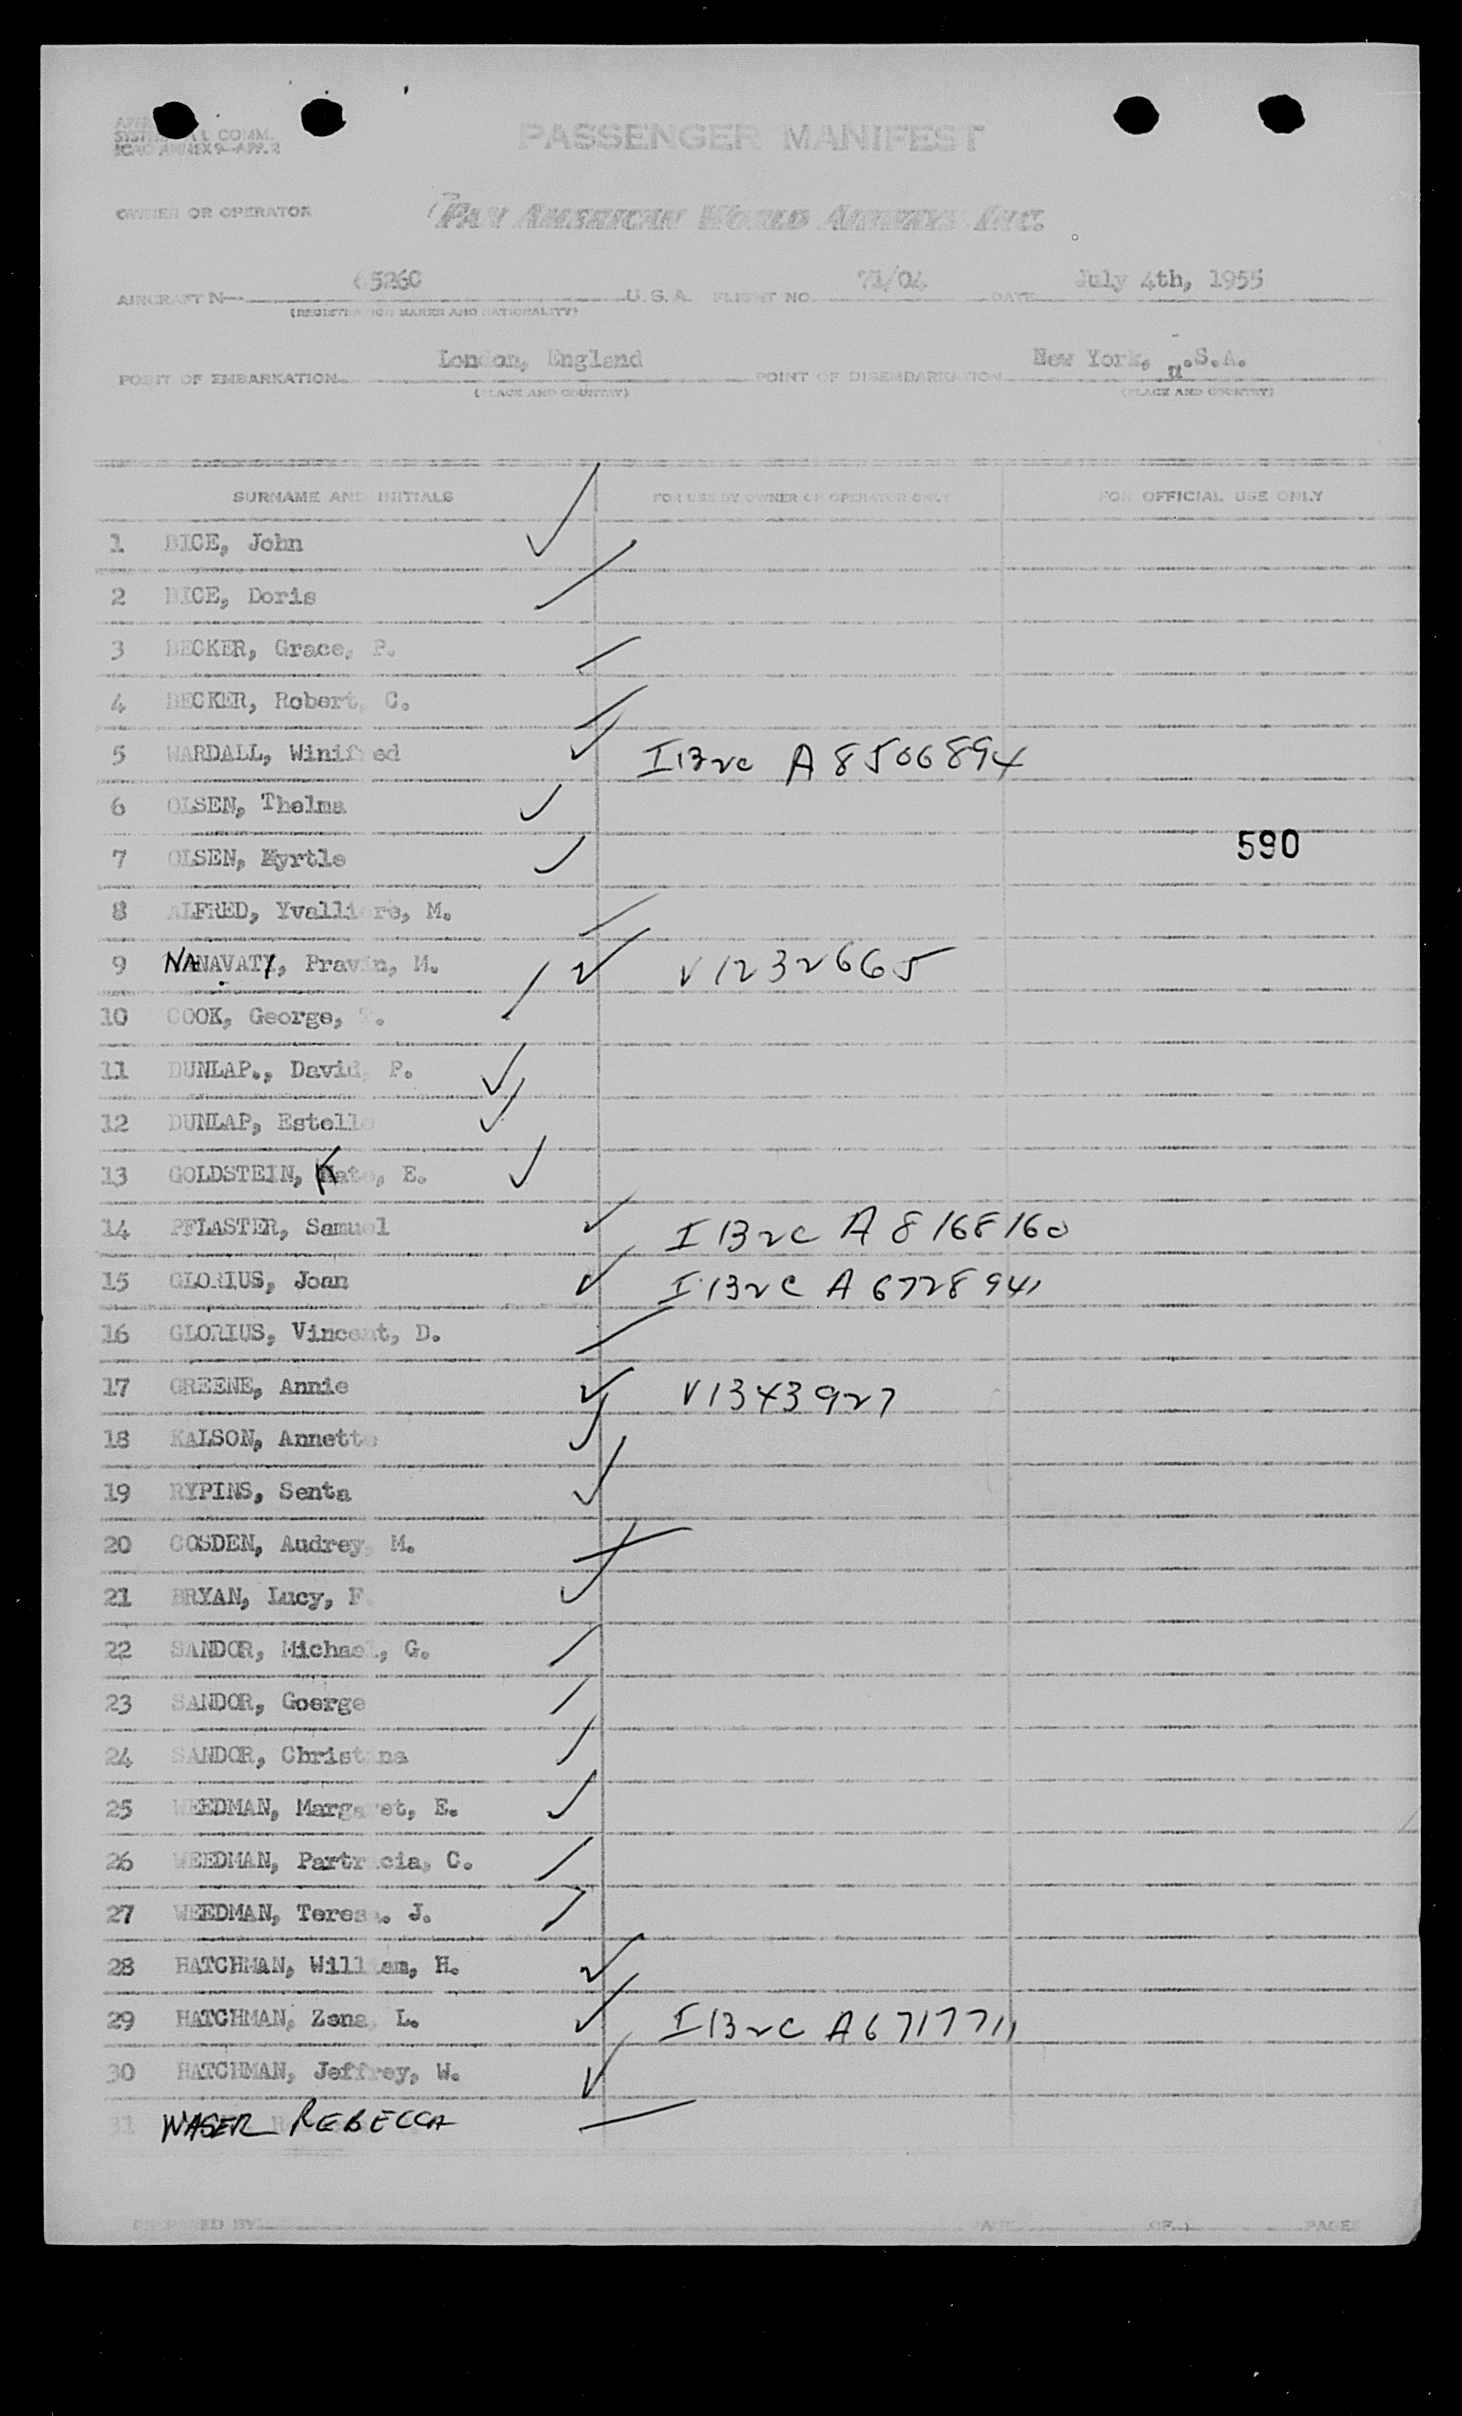 SYST COMM.
ICAO ANNEX 9-APP. 2
PASSENGER MANIFEST
OWNER OR OPERATOR PAN AMERICAN WORLD AIRWAYS INC.
AIRCRAFT N 65260 U.S.A. FLIGHT NO. 71/04 DATE July 4th, 1955
(REGISTRATION MARKS AND NATIONALITY)
POINT OF EMBARKATION London, England POINT OF DISEMBARKATION New York, U.S.A.
(PLACE AND COUNTRY) (PLACE AND COUNTRY)
SURNAME AND INITIALS FOR USE BY OWNER OR OPERATOR ONLY FOR OFFICIAL USE ONLY
1 BICE, John
2 BICE, Doris
3 BECKER, Grace, P.
4 BECKER, Robert, C.
5 WARDALL, Winifred I132c A8506894
6 OLSEN, Thelma
7 OLSEN, Myrtle 590
8 ALFRED, Yvalliere, M.
9 NANAVATY, Pravin, M. V1232665
10 COOK, George, T.
11 DUNLAP., David, P.
12 DUNLAP, Estelle
13 GOLDSTEIN, Kate, E.
14 PFLASTER, Samuel I132c A8168160
15 GLORIUS, Joan I132c A6728941
16 GLORIUS, Vincent, D.
17 GREENE, Annie V1343927
18 KALSON, Annette
19 RYPINS, Senta
20 COSDEN, Audrey, M.
21 BRYAN, Lucy, F.
22 SANDOR, Michael, G.
23 SANDOR, Goerge
24 SANDOR, Christina
25 WEEDMAN, Margaret, E.
26 WEEDMAN, Partricia, C.
27 WEEDMAN, Teresa. J.
28 HATCHMAN, William, H.
29 HATCHMAN, Zena, L. I132c A6717711
30 HATCHMAN, Jeffrey, W.
31 WASER REBECCA
PREPARED BY PAGE OF PAGES